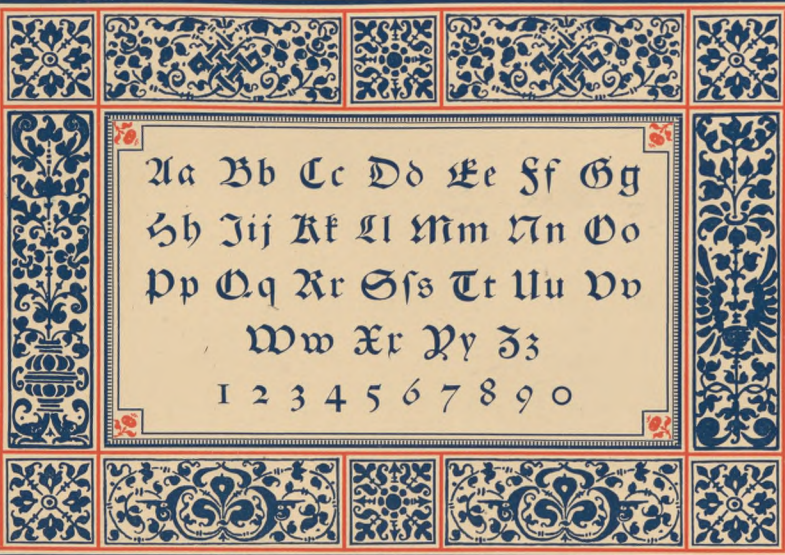 Aa Bb Cc Dd Ee Ff Gg
Hh Jij Kk Ll Mm Nn Oo
Pp Qq Rr Sſs Tt Uu Vv
Ww Xx Yy Zz
1 2 3 4 5 6 7 8 9 0